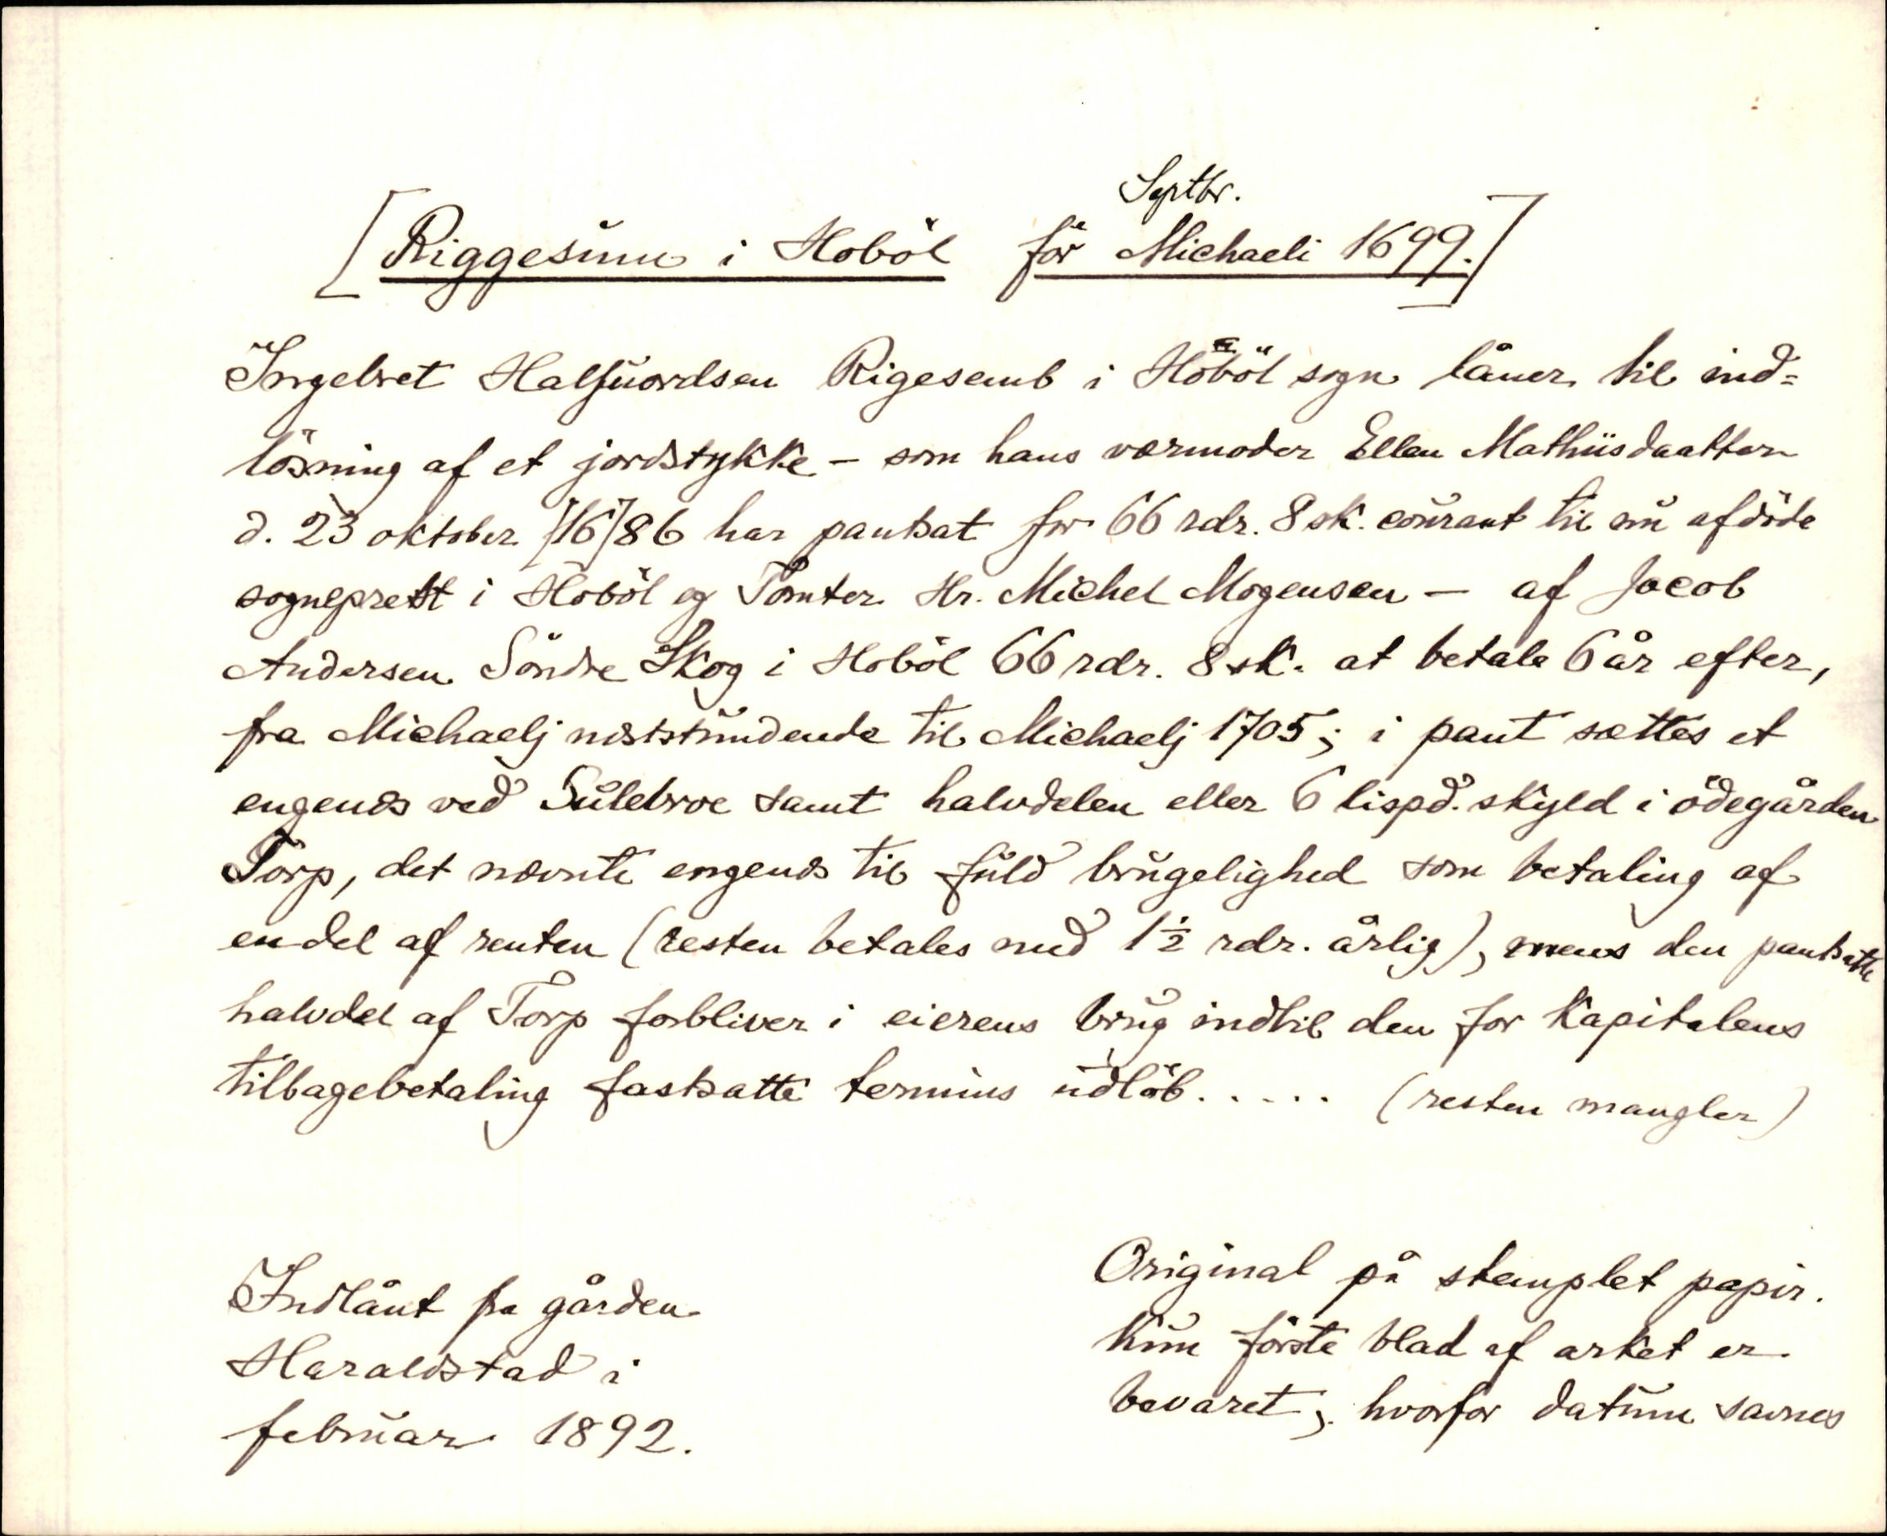 Septbr.
[Riggesum i Hoböl för Michaeli 1699.]
Ingebret Halfuordsen Rigesemb i Hoböl sogn låner til ind=
lösning af et jordstykke – som hans værmoder Ellen Mathiisdaatter
d. 23 oktober [16]86 har pantsat for 66 rdr. 8 sk. courant til nu afdöde
sogneprest i Hoböl og Tomter Hr. Michel Mogensen – af Jacob
Andersen Söndre Skog i Hoböl 66 rdr. 8 sk. at betale 6 år efter,
fra Michaelj neststundende til Michaelj 1705; i pant sættes et
engends ved Sulebroe samt halvdelen eller 6 lispd. skyld i ödegården
Torp, det nævnte engends til fuld brugelighed som betaling af
en del af renten (resten betales med 1½ rdr. årlig), mens den pantsatte
halvdel af Torp forbliver i eierens brug indtil den for kapitalens
tilbagebetaling fastsatte termins udlöb. . . . . (resten mangler)
Indlånt fra gården
Haraldstad i
februar 1892.
Original på stemplet papir.
Kun förste blad af arket er
bevaret; hvorfor datum savnes